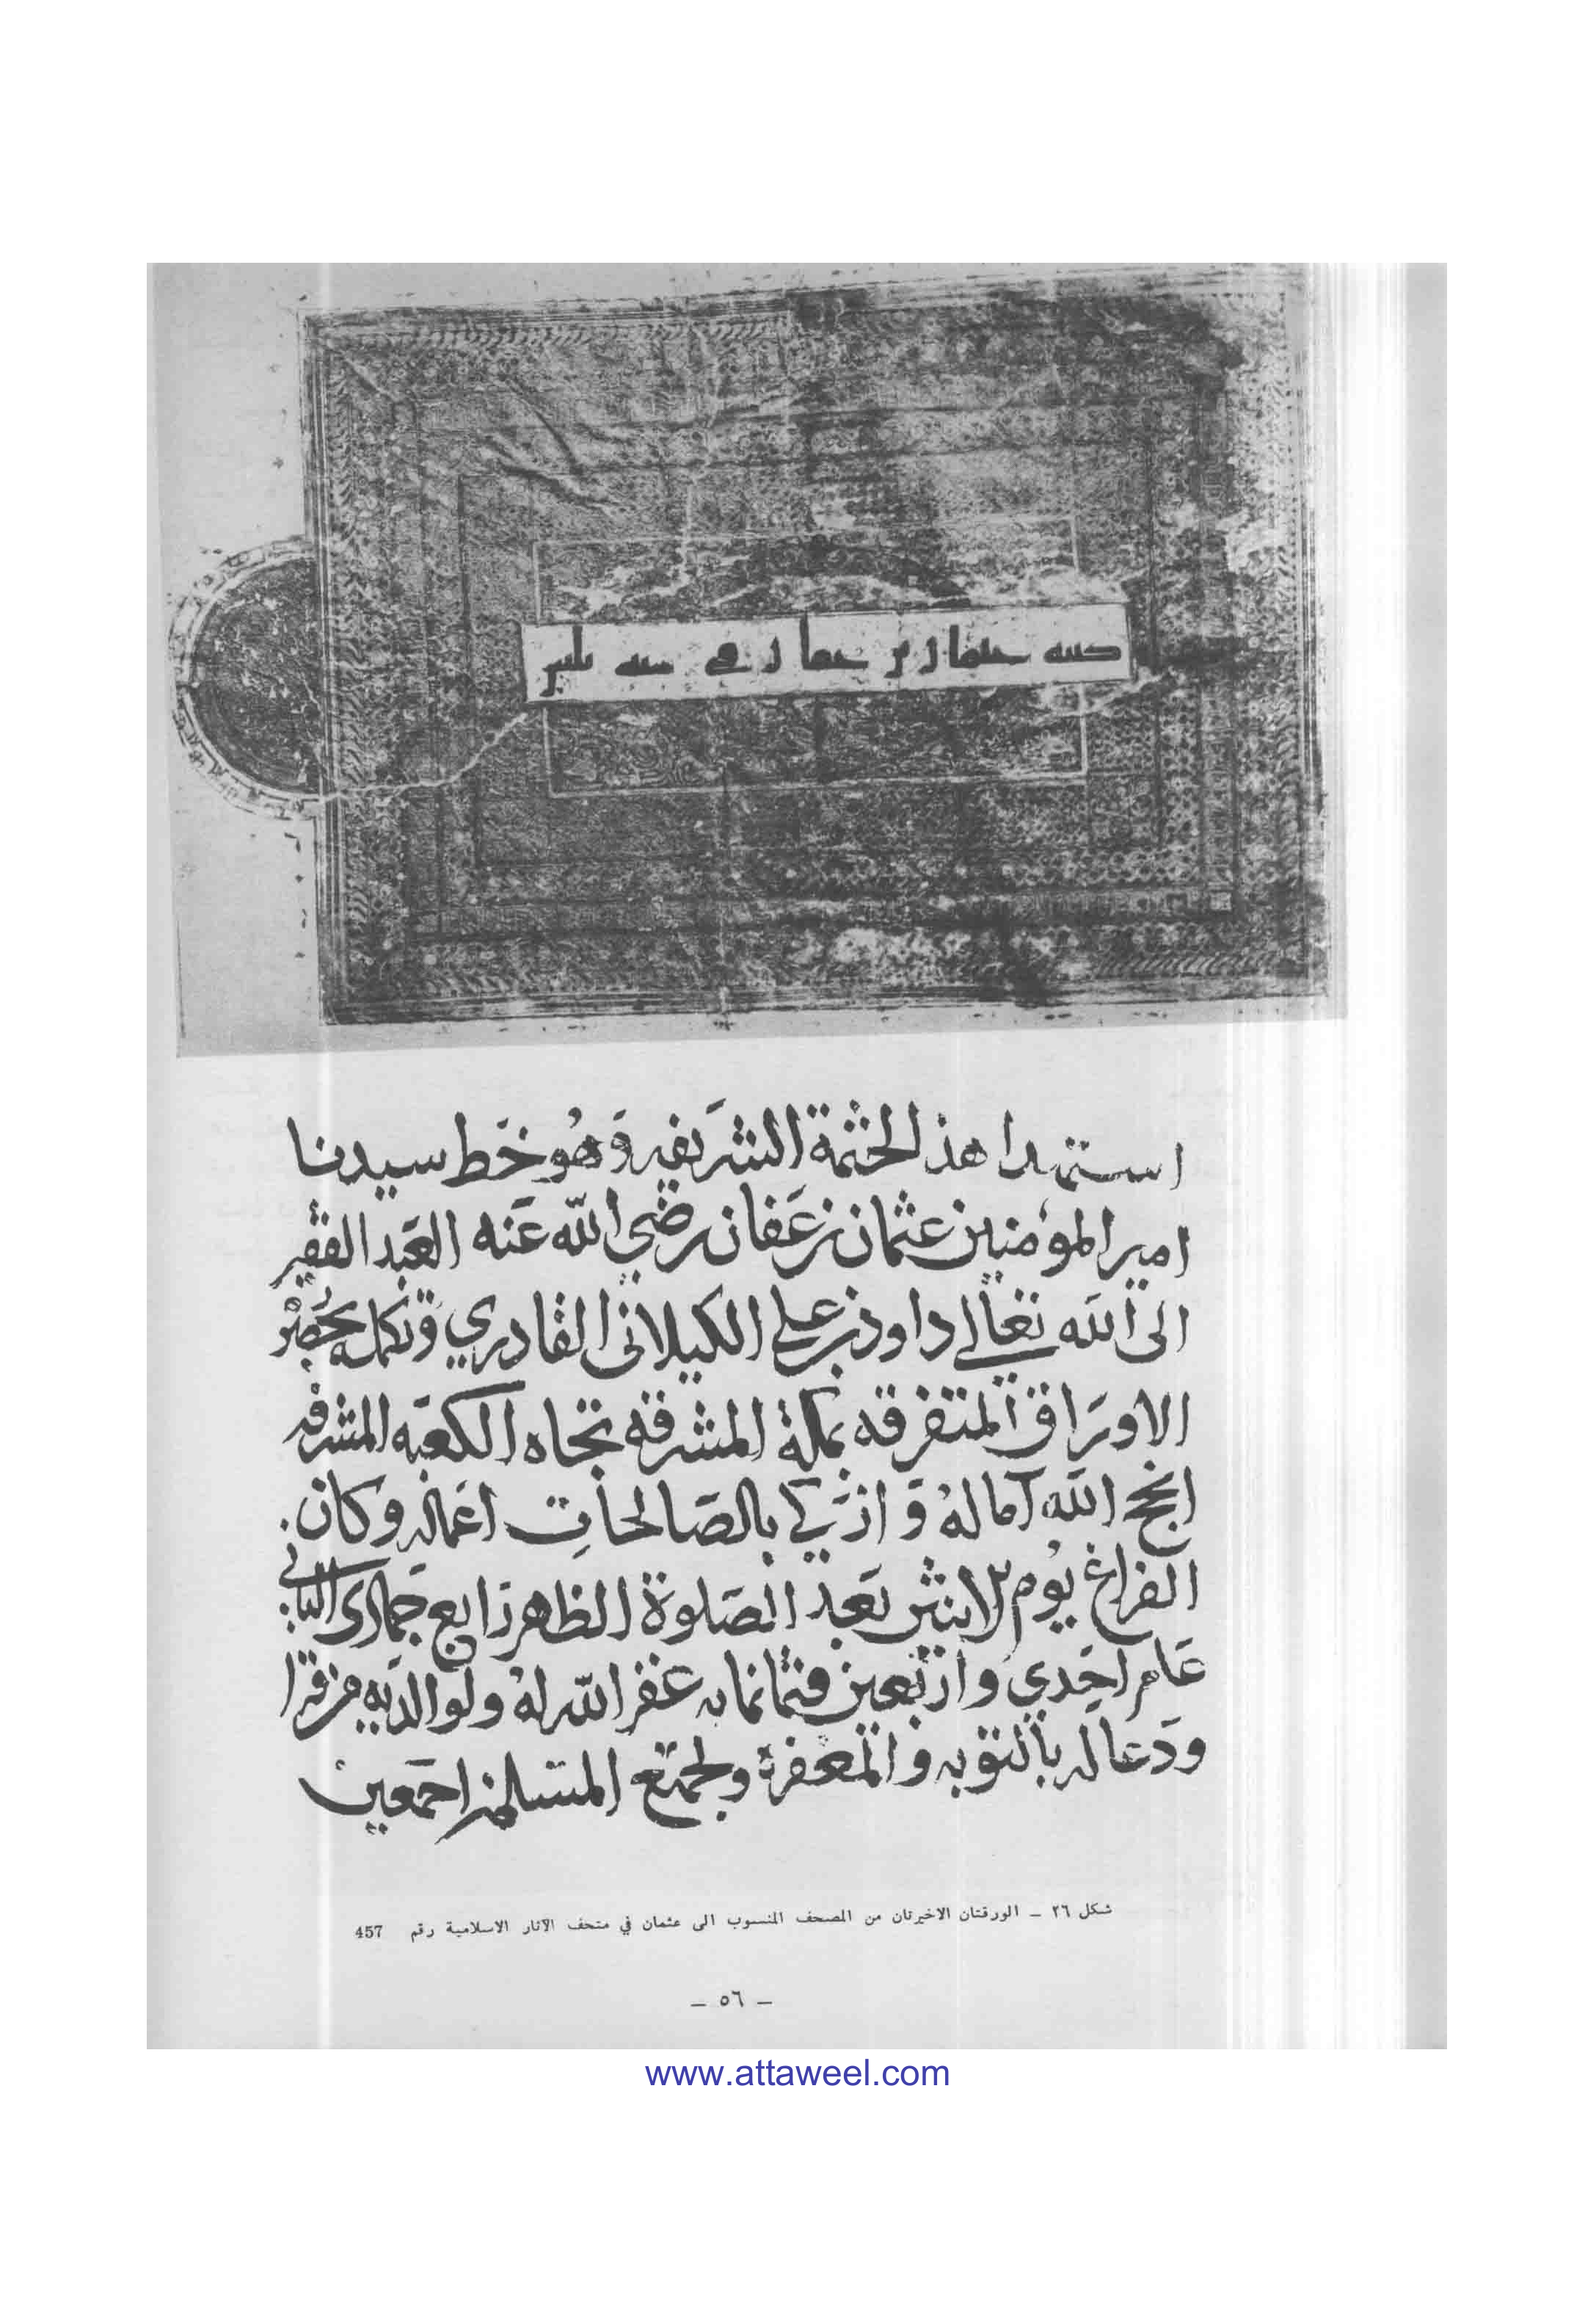 كتبه عثمان بن عفان في سنه ثلثين
استمدا هذ الختمة الشريفه وهو خط سيدنا
امير المؤمنين عثمان بن عفان رضي الله عنه العبد الفقير
الى الله تعالى داود بن علي الكيلاني القادري وتكمله بعض
الاوراق المتفرقه بمكة المشرفه تجاه الكعبه المشرفه
انجح الله آماله وازكي بالصالحات اعماله وكان
الفراغ يوم الاثنين بعد الصلوة الظهر رابع جمادى الثاني
عام احدي واربعين وثمانمايه غفر الله له ولوالديه من قرا
ودعا له بالتوبه والمغفرة ولجميع المسلمين اجمعين
شكل ٢٦ – الورقتان الاخيرتان من المصحف المنسوب الى عثمان في متحف الآثار الاسلامية رقم 457
– ٥٦ –
www.attaweel.com